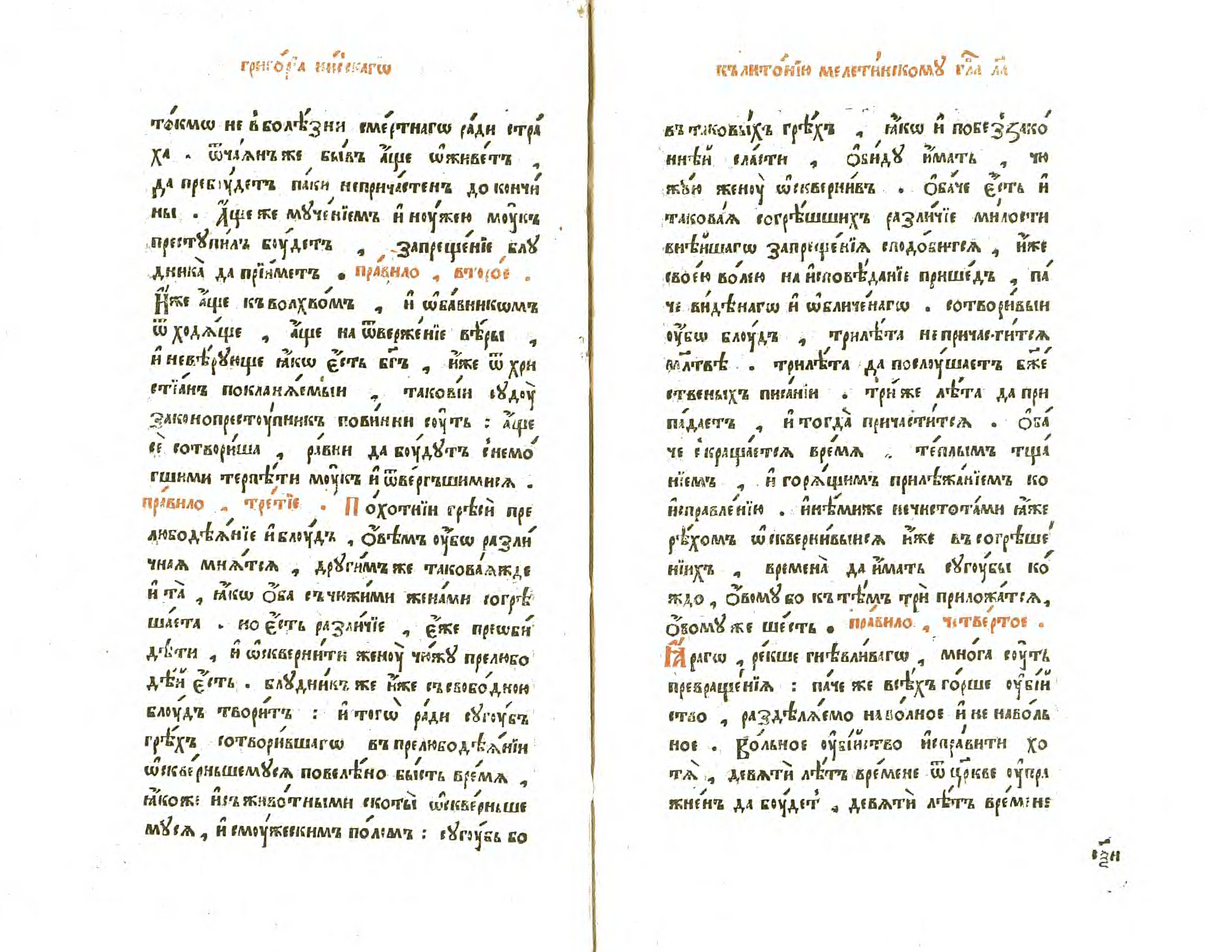 григо́рїа ни́скагѡ
то́кмѡ не в̾боле́ѣзни сме́ртнагѡ ра́ди стра́
ха . ѿча́ѧнъ же бы́въ а҆́ще ѡ҆живе́тъ ,
да пребꙋ́детъ па́ки неприча́стенъ до кончи́
ны . А҆́ще же мꙋче́нїемъ и҆ ноу́жею моу́къ
престꙋпи́лъ боу́детъ , запреще́нїе блꙋ
дника̀ да прїи́метъ . пра́вило , второ́е .
И҆́же а҆́ще къ волхво́мъ , и҆ ѡ҆ба́вникѡмъ
ѿходѧ́ще , а҆́ще на ѿверже́нїе вѣ́ры ,
и҆ невѣ́рꙋюще ꙗ҆́кѡ є҆́сть бг҃ъ , и҆́же ѿ хри
стїа́нъ покланѧ́емыи , тако́вїи сꙋдоу̀
законопрестоу́пникъ пови́нни соу́ть : а҆́ще
сѐ сотвори́ша , ра́вни да боу́дꙋтъ с̾немо́
гшими терпѣ́ти моу́къ и҆ ѿве́ргъшимисѧ .
пра́вило , тре́тїе . По́хотнїи грѣсѝ пре
любодѣѧ́нїе и҆ блоу́дъ , ѻ҆́вѣмъ оу҆́бѡ разли́
чнаѧ мнѧ́тсѧ , дрꙋги́мъ же такова́ѧжде
и҆ та̀ , ꙗ҆́кѡ ѻ҆́ба съ чюжи́ми жена́ми согрѣ
ша́ета . но є҆́сть разли́чїе , є҆́же преѡби́
дѣти , и҆ ѡ҆скверни́ти женоу̀ чю́жꙋ прелюбо
дѣ́й є҆́сть . блꙋдни́къ же и҆́же съ свобо́дною
блоу́дъ твори́тъ : и҆ тогѡ̀ ради сꙋгоу́бъ
грѣ́хъ сотвори́вшагѡ въ прелюбодѣѧ́нїи
ѡ҆скве́рньшемꙋсѧ повелѣ́но бы́сть вре́мѧ ,
ꙗ҆́коже и҆ съ живо́тными скоты̀ ѡ҆скве́рньше
мꙋсѧ , и҆ с моу́жескимъ по́ломъ : сꙋгоу́бь бо
къ лито́нїю мелети́нскомꙋ гла҃ ла҃
въ таковы́хъ грѣ́хъ , ꙗ҆́кѡ и҆ по беззако́
ннѣй сла́сти , ѻ҆би́дꙋ и҆́мать , чю
жꙋ́ю женоу̀ ѡ҆скверни́въ . ѻ҆ба́че є҆́сть и҆
такова́ѧ согрѣ́шшихъ разли́чїе ми́лости
внѣ́йшагѡ запреще́нїѧ сподо́битсѧ , и҆́же
свое́ю во́лею на и҆сповѣ́данїе прише́дъ , па́
че ви́дѣнагѡ и҆ ѡ҆бличе́нагѡ . сотвори́выи
оу҆́бѡ блоу́дъ , три лѣ́та не прича́ститсѧ
мл҃твѣ . три лѣ́та да послоу́шаетъ бж҃е
ственыхъ писа́нїи . три́ же лѣ́та да при
па́даетъ , и҆ тогда̀ причасти́тсѧ . ѻ҆ба́
че с̾краща́етсѧ вре́мѧ . те́плымъ тща́
нїемъ , и҆ горѧ́щимъ прилѣжа́нїемъ ко
и҆справле́нїю . и҆нѣ́ми же нечистота́ми ꙗ҆́же
рѣ́хомъ ѡ҆скверни́выисѧ и҆́же въ согрѣше́
нїихъ , времена̀ да и҆́мать сꙋгоу́бы ко́
ждо , ѻ҆́вомꙋ бо къ тѣ́мъ трѝ приложа́тсѧ ,
ѻ҆́вомꙋ же ше́сть . пра́вило , четве́ртое .
Ꙗ҆́рагѡ , ре́кше гнѣвли́вагѡ , мно́га соу́ть
превраще́нїѧ : па́че же всѣ́хъ го́рше оу҆бі́й
ство , раздѣлѧ́емо на во́лное и҆ не на во́ль
ное . Во́льное оу҆бі́йство и҆спра́вити хо
тѧ̀ , девѧтѝ лѣ́тъ вре́мене ѿ цр҃кве оу҆пра
жне́нъ да боу́дет̾ , девѧтѝ лѣ́тъ вре́мене